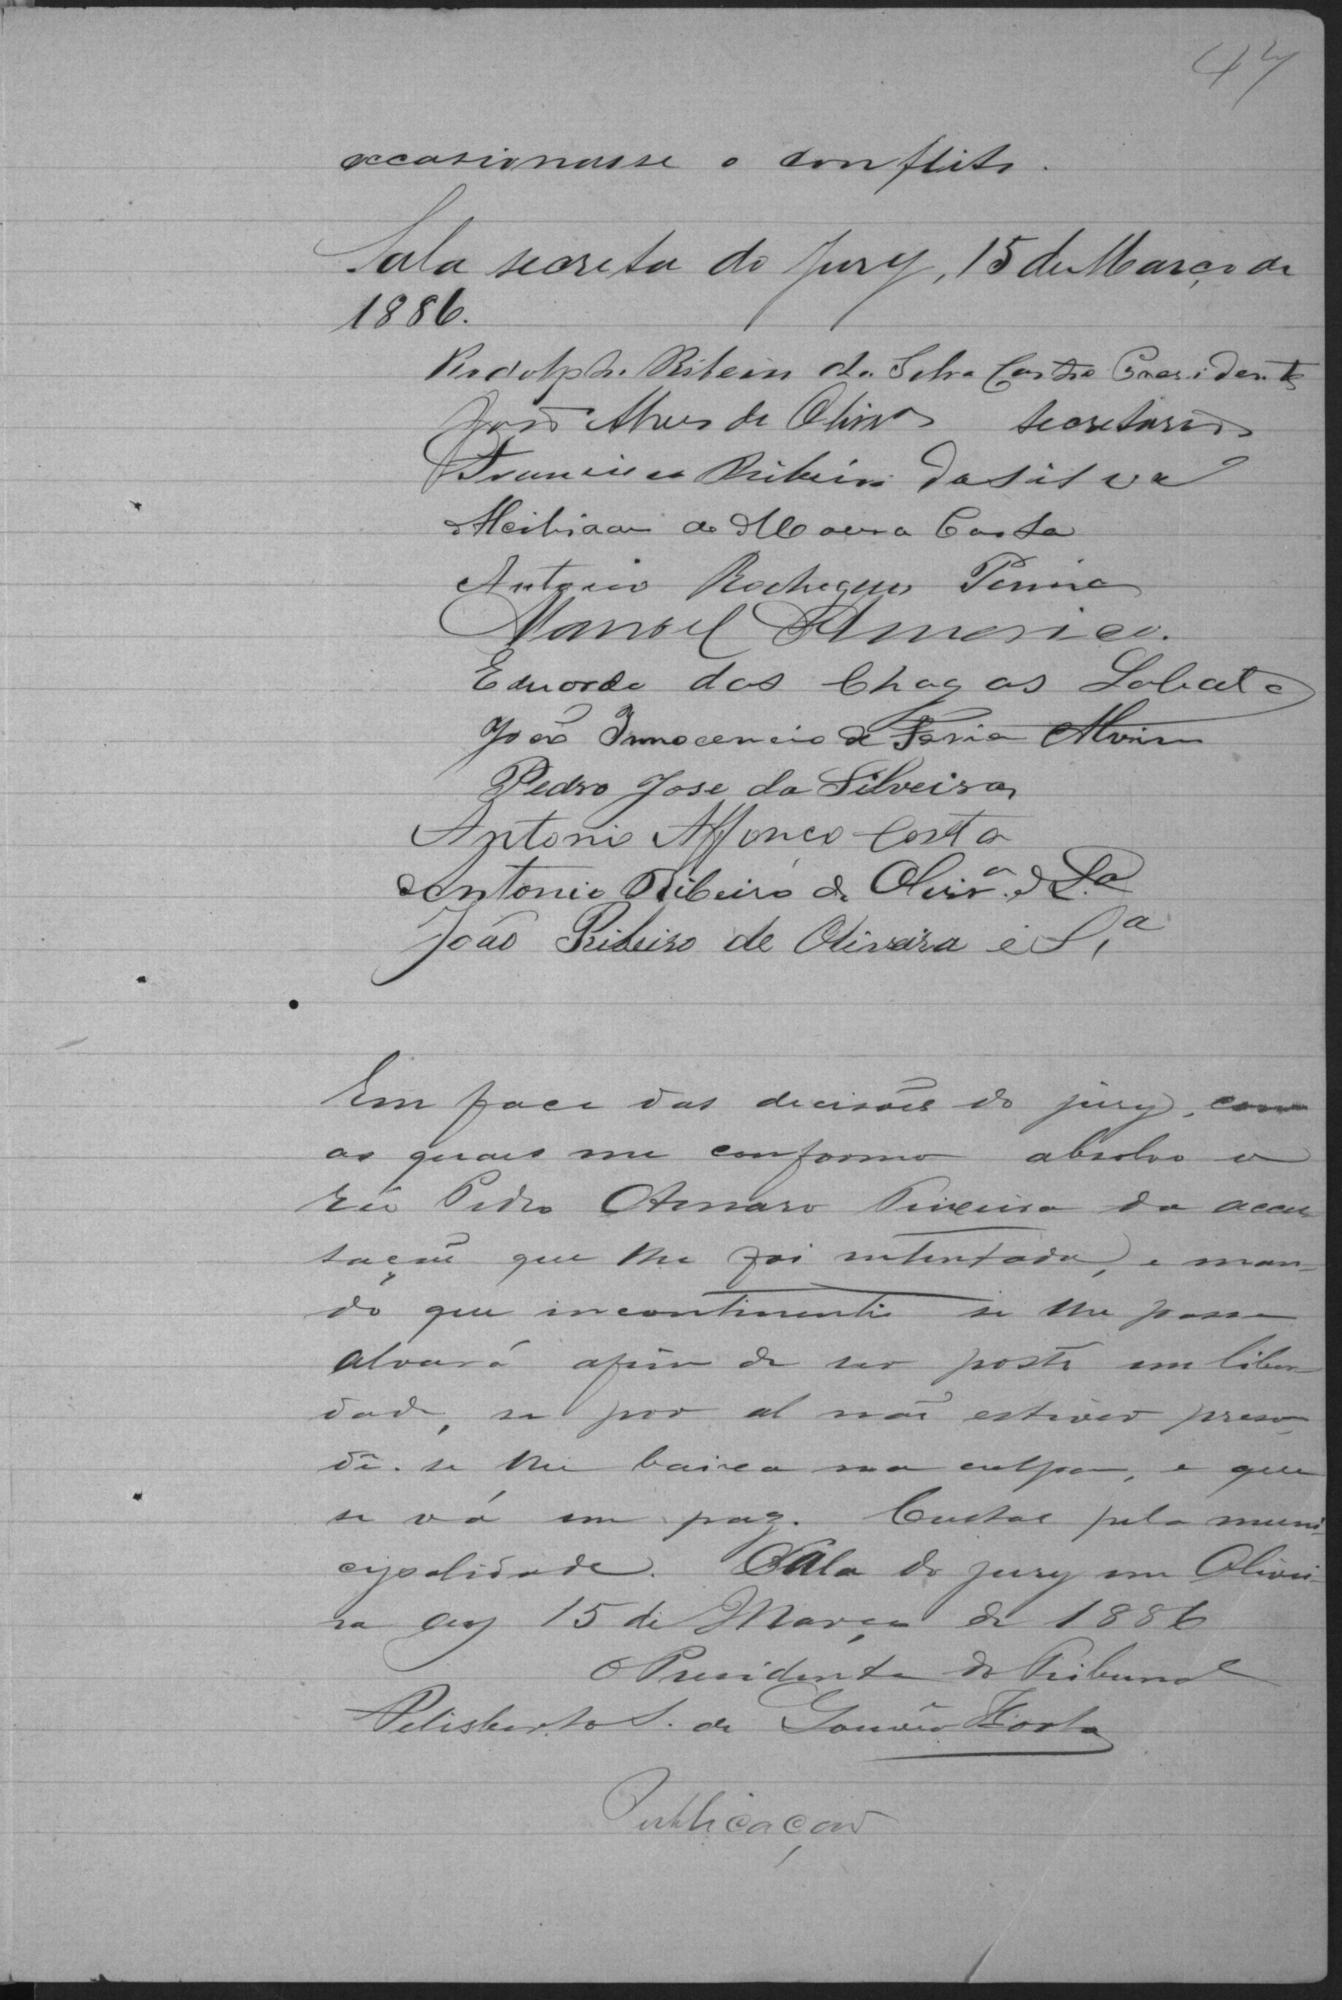 47
occasionasse o conflito.
Sala secreta do Jury, 15 de Março de
1886.
Rodolpho Ribeiro da Silva Castro Presidente
José Alves de Olivrª secretario
Francisco Ribeiro da Silva
Alcibiades de Moura Costa
Antonio Rodrigues Perira
Manoel Americo.
Eduardo das Chagas Lobato
João Innocencio de Faria Alvim
Pedro Jose da Silveira
Antonio Affonço Costa
Antonio Ribeiro de Olivrª. e Sª
João Ribeiro de Oliveira e Sª
Em face das decisões do jury, com
as quaes me conformo absolvo o
réo Pedro Amaro da accu
sação que lhe foi intentada, e man-
do que incontinenti se lhe passe
alvará afim de ser posto em liber
dade, se por al não estiver preso,
dê-se lhe baixa na culpa, e que
se vá em paz. Custas pela muni-
cipalidade. Sala do jury em Olivei-
ra aos 15 de Março de 1886
O Presidente do Tribunal
Felisberto S. de Gouvêa Horta
Publicação